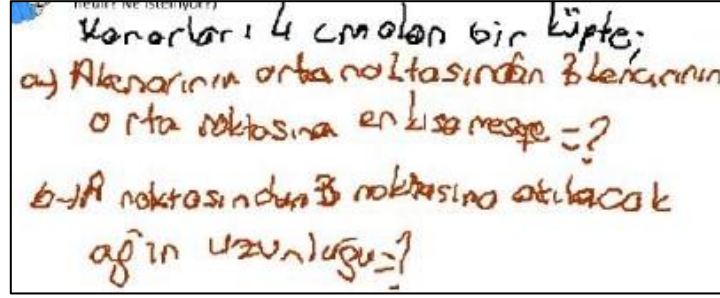 nedir? Ne isteniyor?)
Kenarları 4 cm olan bir küpte;
a) A kenarının orta noktasından B kenarının
orta noktasına en kısa mesafe =?
b-) A noktasından B noktasına atılacak
ağın uzunluğu=?